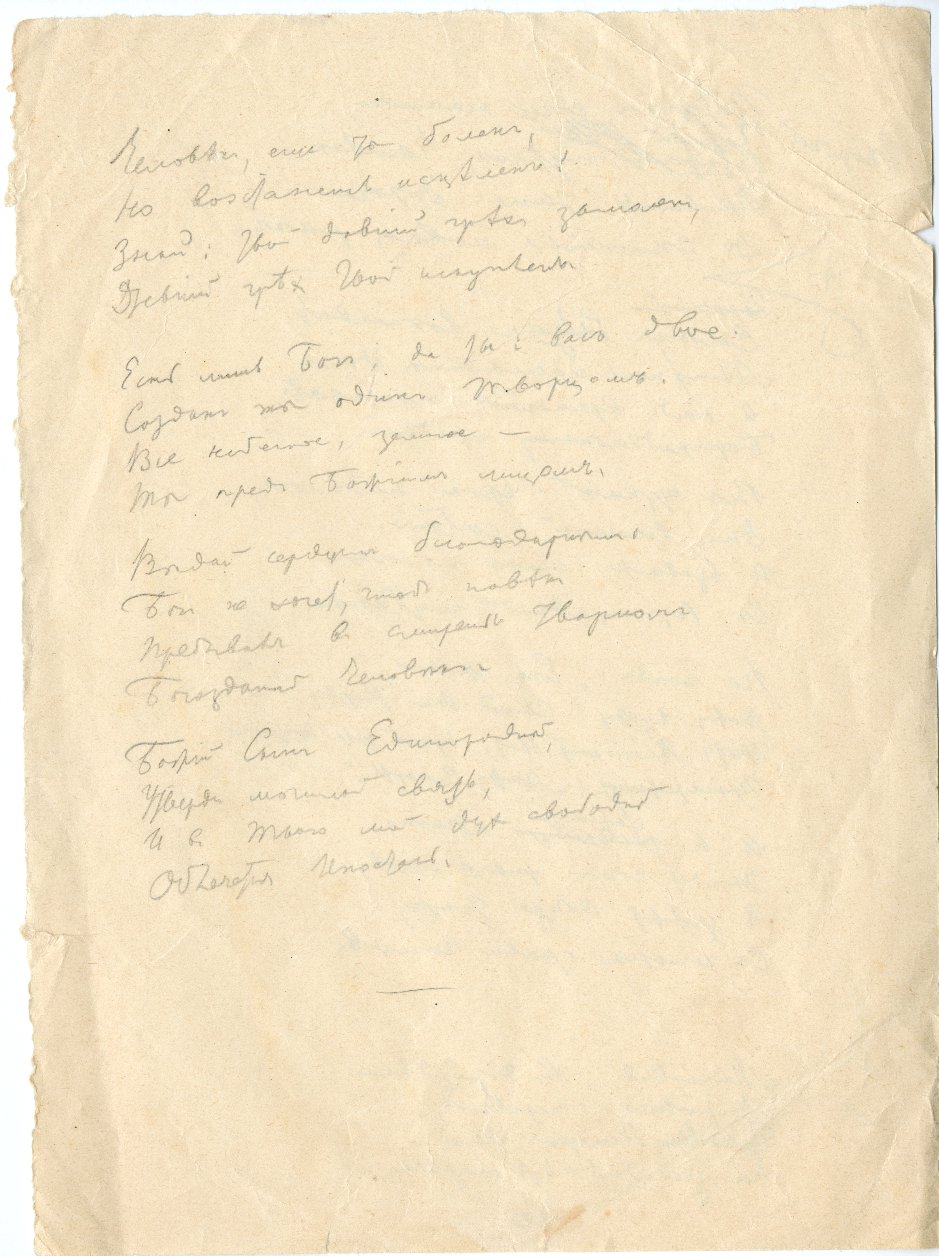 Человѣкъ, еще ты боленъ,
Но возстанешь исцѣленъ!
Знай: твой давній грѣхъ замоленъ,
Древній грѣхъ твой искупленъ.
Есть лишь Богъ, да ты: васъ двое.
Созданъ ты одинъ Творцомъ.
Все небесное, земное —
Ты предъ Божіимъ лицомъ.
сердцемъ благодарнымъ:
Богъ не хочетъ, чтобъ навѣкъ
Пребывалъ въ смиреньѣ тварномъ
Богозданный Человѣкъ.
Божій Сынъ Единородный,
Утверди могилой связь,
И въ Твою мой духъ свободный
Облечется Ипостась.